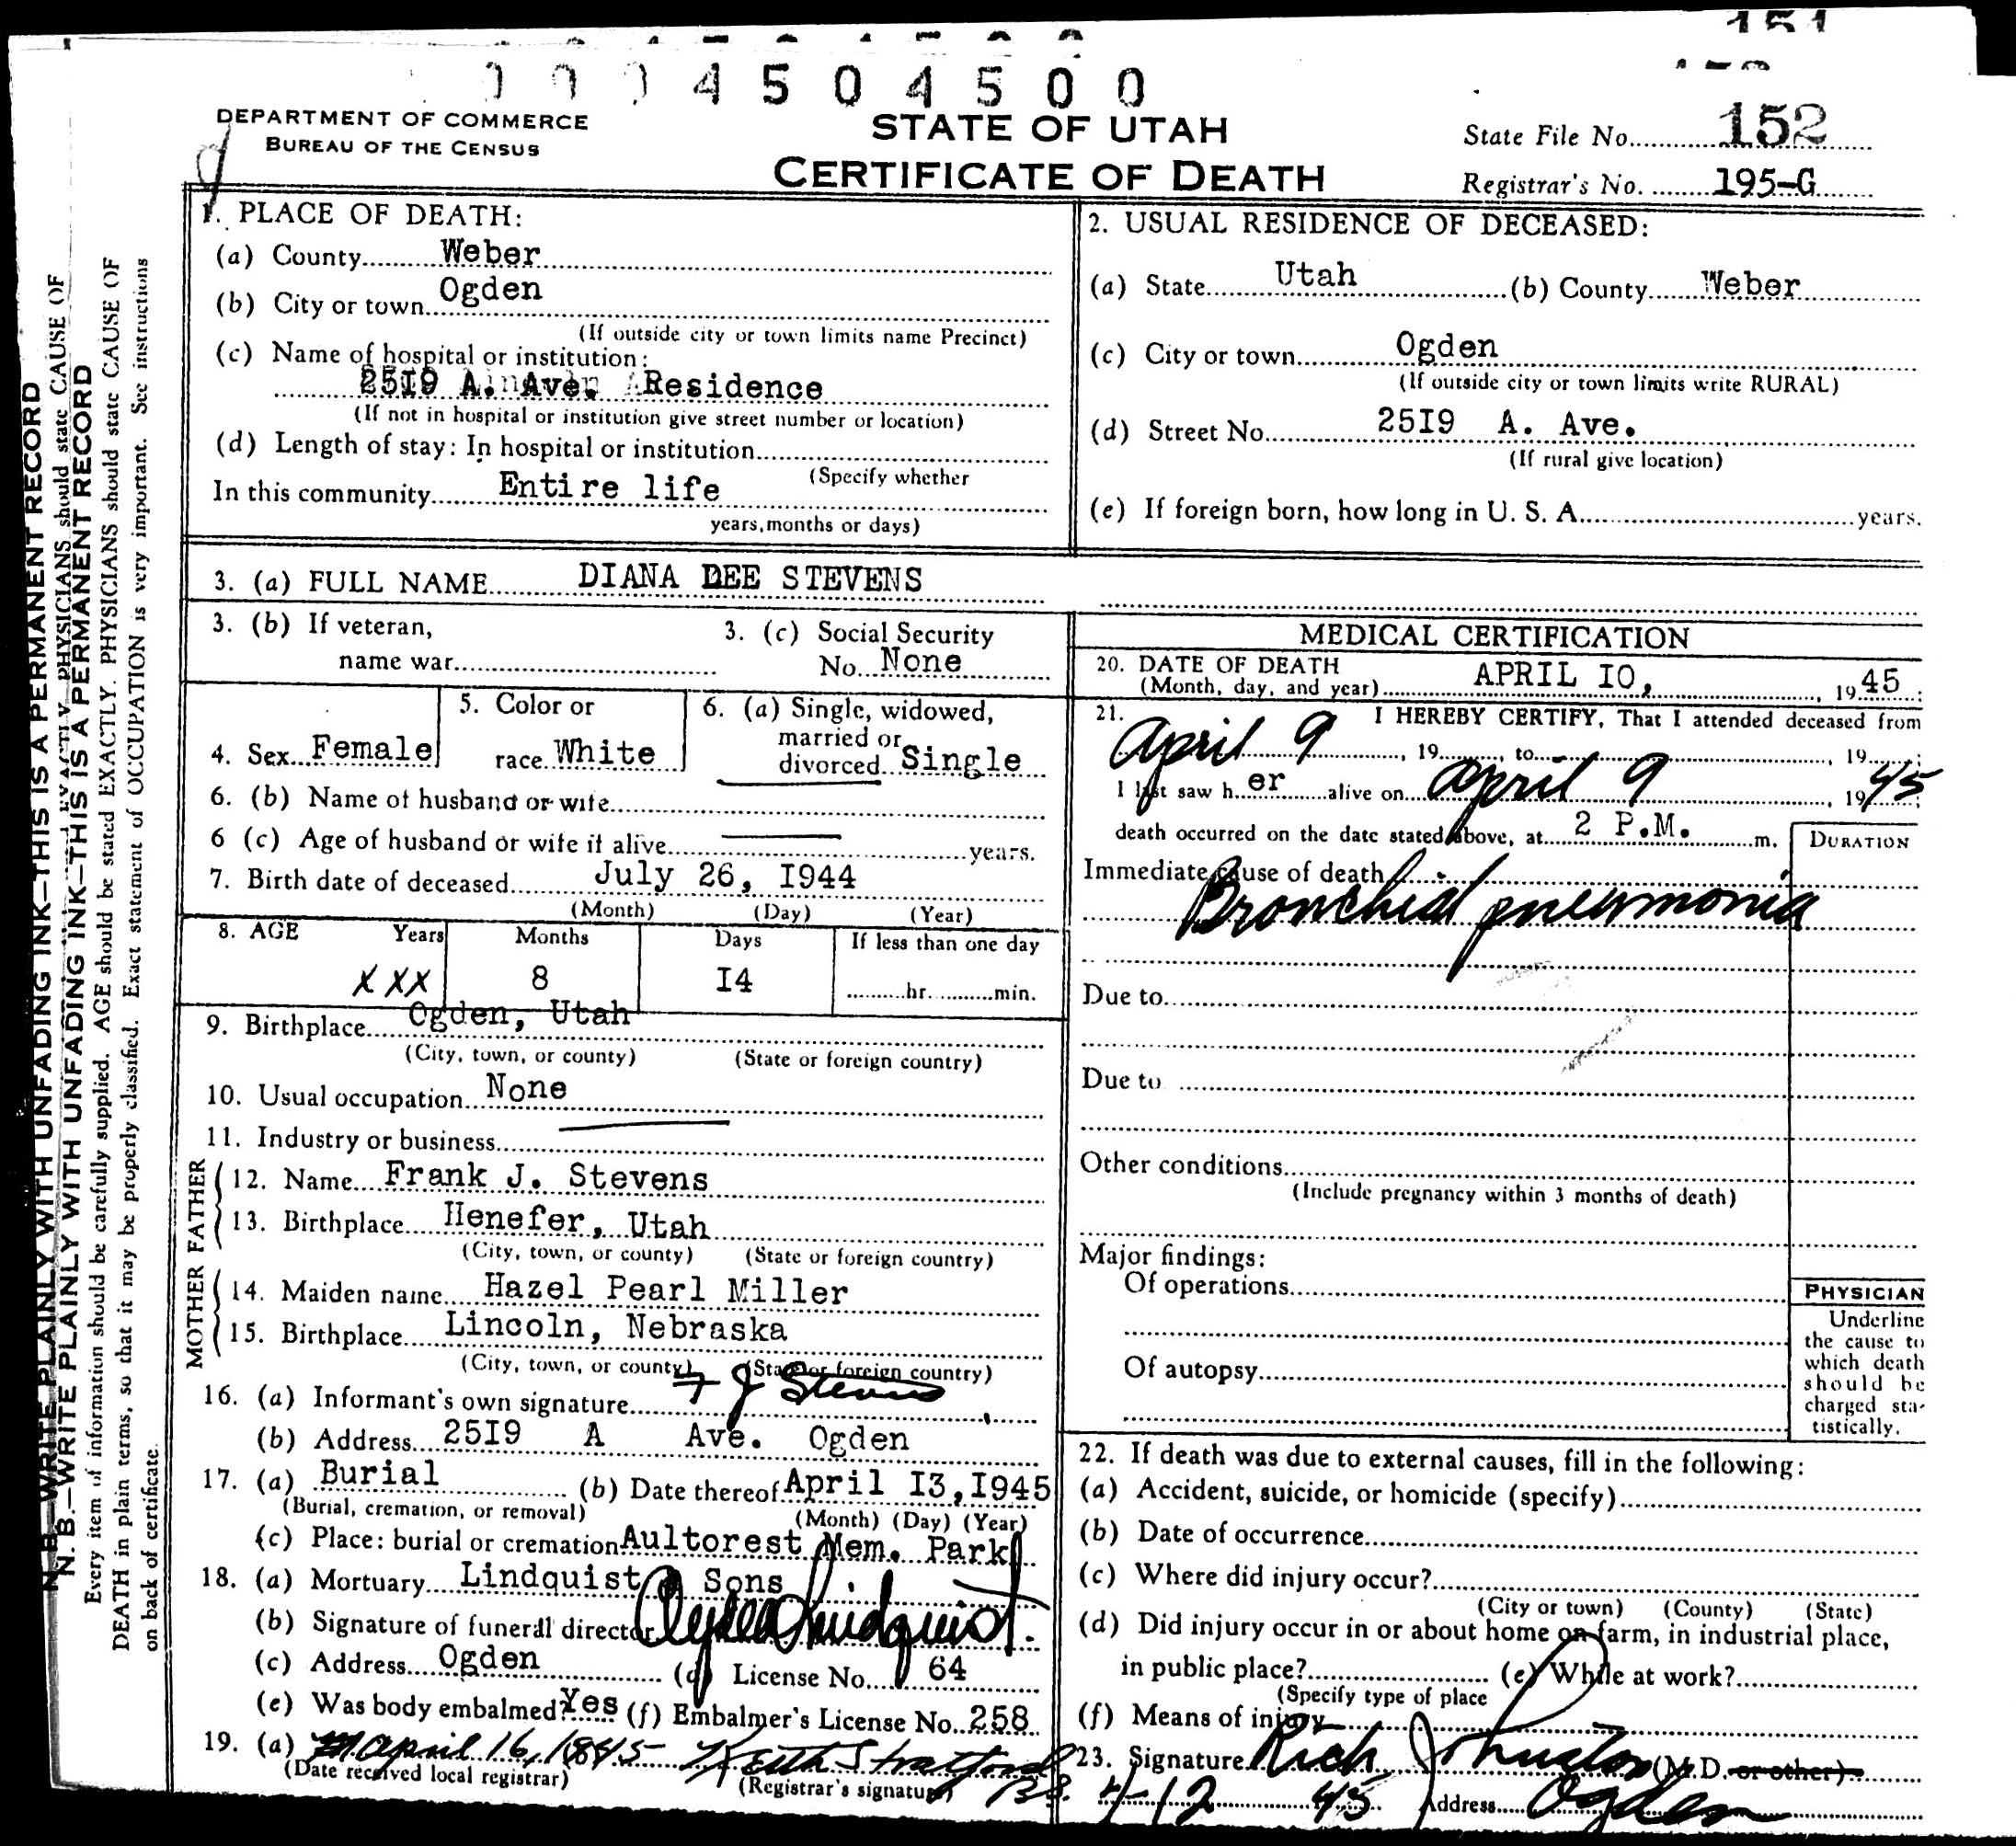 151
0004504500
DEPARTMENT OF COMMERCE
BUREAU OF THE CENSUS
STATE OF UTAH
CERTIFICATE OF DEATH
State File No. 152
Registrar's No. 195-G
N. B.—WRITE PLAINLY WITH UNFADING INK—THIS IS A PERMANENT RECORD
Every item of information should be carefully supplied. AGE should be stated EXACTLY. PHYSICIANS should state CAUSE OF
DEATH in plain terms, so that it may be properly classified. Exact statement of OCCUPATION is very important. See instructions
on back of certificate.
1. PLACE OF DEATH:
(a) County Weber
(b) City or town Ogden
(If outside city or town limits name Precinct)
(c) Name of hospital or institution:
25I9 A. Ave. Residence
(If not in hospital or institution give street number or location)
(d) Length of stay: In hospital or institution
(Specify whether
In this community Entire life
years, months or days)
2. USUAL RESIDENCE OF DECEASED:
(a) State Utah (b) County Weber
(c) City or town Ogden
(If outside city or town limits write RURAL)
(d) Street No. 25I9 A. Ave.
(If rural give location)
(e) If foreign born, how long in U. S. A. years.
3. (a) FULL NAME DIANA DEE STEVENS
3. (b) If veteran,
name war
3. (c) Social Security
No. None
4. Sex Female
5. Color or
race White
6. (a) Single, widowed,
married or
divorced Single
6. (b) Name of husband or wife
6 (c) Age of husband or wife if alive years.
7. Birth date of deceased July 26, I944
(Month) (Day) (Year)
8. AGE Years Months Days If less than one day
XXX 8 I4 hr. min.
9. Birthplace Ogden, Utah
(City, town, or county) (State or foreign country)
10. Usual occupation None
11. Industry or business
FATHER
12. Name Frank J. Stevens
13. Birthplace Henefer, Utah
(City, town, or county) (State or foreign country)
MOTHER
14. Maiden name Hazel Pearl Miller
15. Birthplace Lincoln, Nebraska
(City, town, or county) (State or foreign country)
16. (a) Informant's own signature F J Stevens
(b) Address 25I9 A Ave. Ogden
17. (a) Burial (b) Date thereof April I3, I945
(Burial, cremation, or removal) (Month) (Day) (Year)
(c) Place: burial or cremation Aultorest Mem. Park
18. (a) Mortuary Lindquist & Sons
(b) Signature of funeral director Lindquist
(c) Address Ogden (d) License No. 64
(e) Was body embalmed? Yes (f) Embalmer's License No. 258
19. (a) April 16, 1845 Keith Stratford
(Date received local registrar) (Registrar's signature)
MEDICAL CERTIFICATION
20. DATE OF DEATH
(Month, day, and year) APRIL IO, 19 45
21. I HEREBY CERTIFY, That I attended deceased from
April 9, 19 , to , 19 ;
I last saw h er alive on April 9, 19 45;
death occurred on the date stated above, at 2 P.M. m.
DURATION
Immediate cause of death
Bronchial pneumonia
Due to
Due to
Other conditions
(Include pregnancy within 3 months of death)
Major findings:
Of operations
Of autopsy
PHYSICIAN
Underline
the cause to
which death
should be
charged sta-
tistically.
22. If death was due to external causes, fill in the following:
(a) Accident, suicide, or homicide (specify)
(b) Date of occurrence
(c) Where did injury occur?
(City or town) (County) (State)
(d) Did injury occur in or about home on farm, in industrial place,
in public place? (e) While at work?
(Specify type of place
(f) Means of injury
23. Signature Rich Johnston (M.D. or other)
4/12 45 Address Ogden